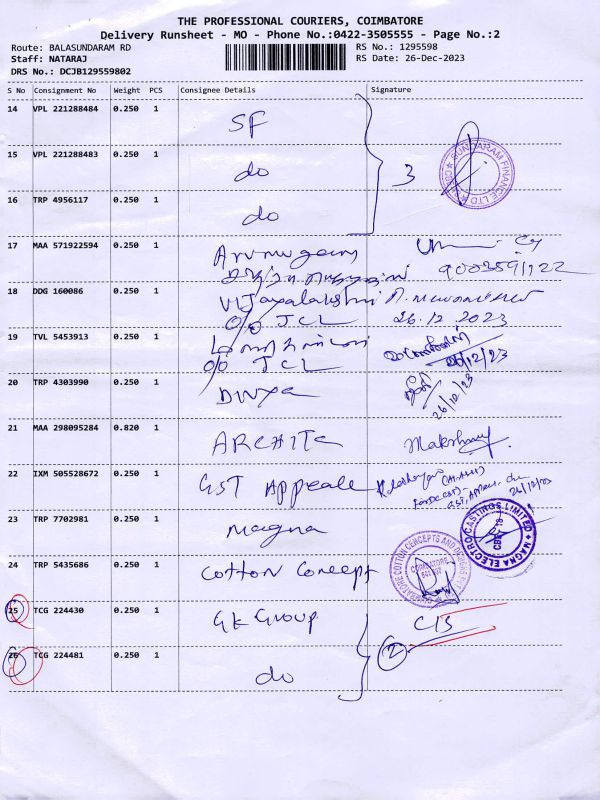 THE PROFESSIONAL COURIERS, COIMBATORE
Delivery Runsheet - MO - Phone No.:0422-3505555 - Page No.:2
Route: BALASUNDARAM RD
Staff: NATARAJ
DRS No.: DCJB129559802
RS No.: 1295598
RS Date: 26-Dec-2023
S No Consignment No Weight PCS Consignee Details Signature
14 VPL 221288484 0.250 1 SF
15 VPL 221288483 0.250 1 do 3
SUNDARAM FINANCE LTD
16 TRP 4956117 0.250 1 do
17 MAA 571922594 0.250 1 Arumugam
9003591122
18 DDG 160086 0.250 1 Vijayalakshmi
o/o JCL 26.12.2023
19 TVL 5453913 0.250 1
o/o JCL 26/12/23
20 TRP 4303990 0.250 1 Divya 26/12/23
21 MAA 298095284 0.820 1
22 IXM 505528672 0.250 1 GST Appeale
26/12/23
23 TRP 7702981 0.250 1 Magna
MAGNA ELECTRO CASTINGS LIMITED
24 TRP 5435686 0.250 1 Cotton Concept
COIMBATORE COTTON CONCEPTS AND DESIGNS
COIMBATORE
25 TCG 224430 0.250 1 GK Group
26 TCG 224481 0.250 1 do 2